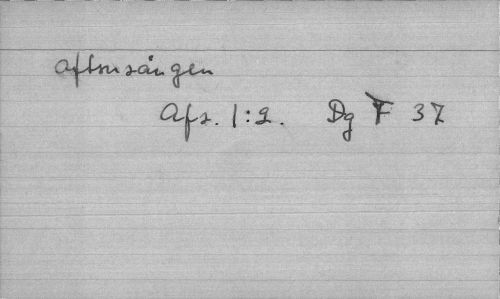 aftonsången
Afs. 1:2. Dg F 37